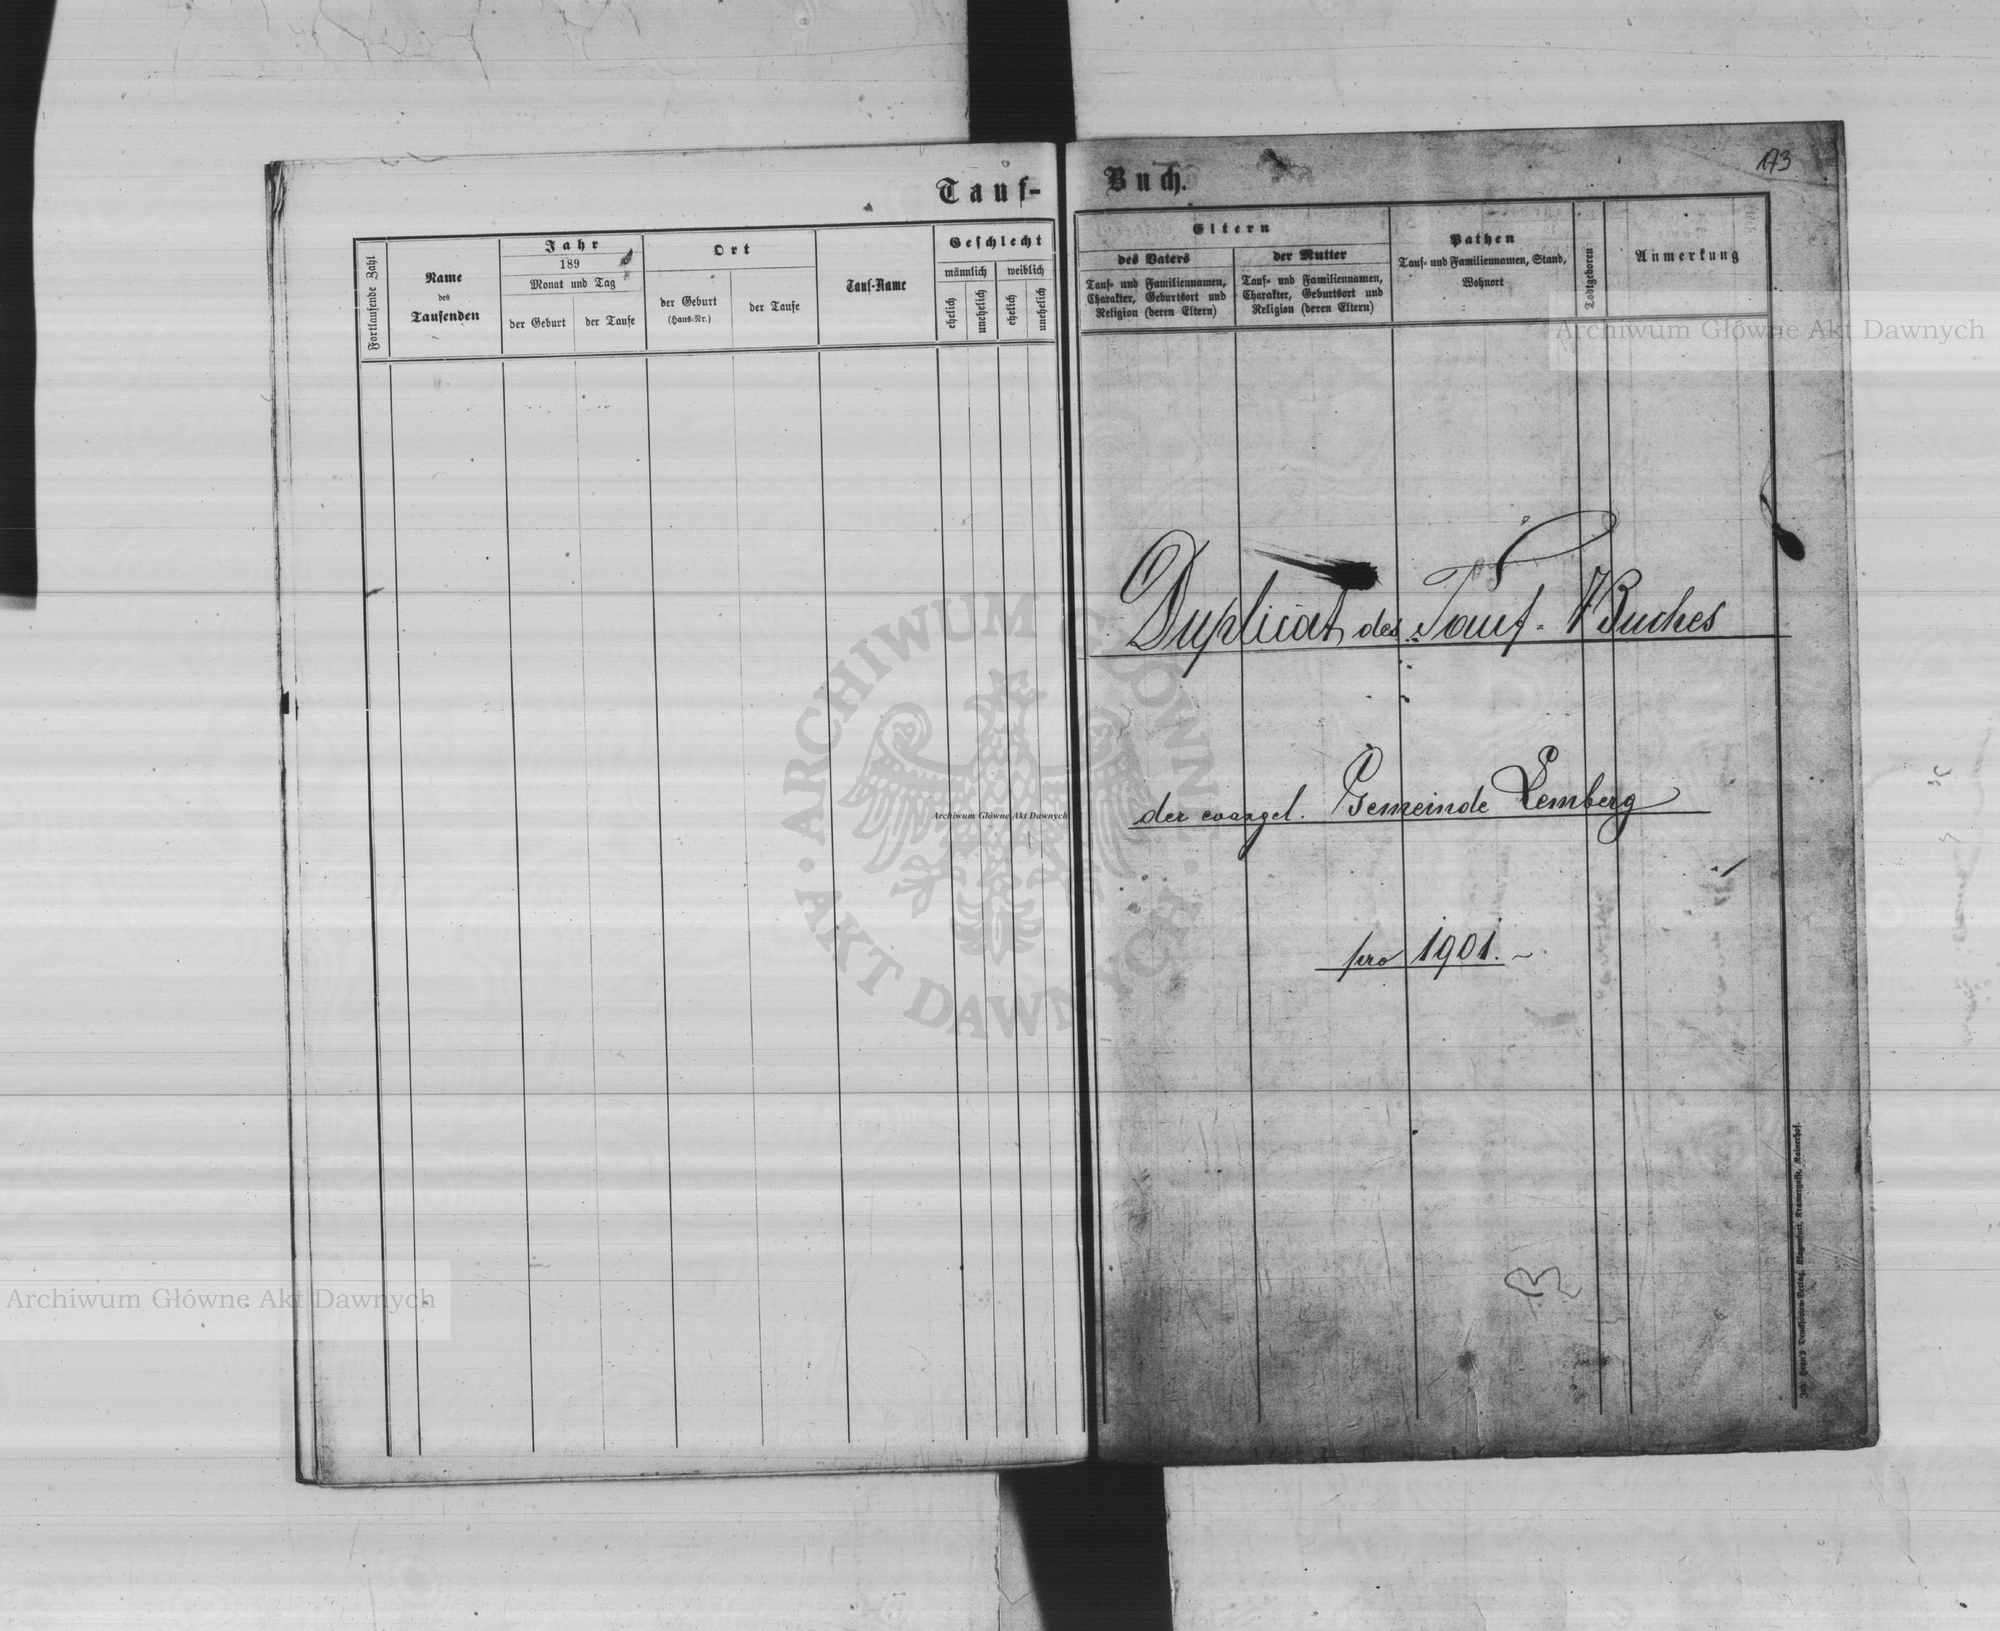 173
Tauf-Buch.
Fortlaufende Zahl
Name
des
Taufenden
Jahr
189
Monat und Tag
der Geburt
der Taufe
Ort
der Geburt
(Haus-Nr.)
der Taufe
Tauf-Name
Geschlecht
männlich
weiblich
ehelich
unehelich
ehelich
unehelich
Eltern
des Vaters
Tauf- und Familiennamen,
Charakter, Geburtsort und
Religion (deren Eltern)
der Mutter
Tauf- und Familiennamen,
Charakter, Geburtsort und
Religion (deren Eltern)
Pathen
Tauf- und Familiennamen, Stand,
Wohnort
Todtgeboren
Anmerkung
Archiwum Główne Akt Dawnych
Duplicat des Tauf-Buches
der evangel. Gemeinde Lemberg
pro 1901.
ARCHIWUM GŁÓWNE · AKT DAWNYCH ·
Archiwum Główne Akt Dawnych
Archiwum Główne Akt Dawnych
Verlag, Klagenfurt, Kramergasse, Rainerhof.